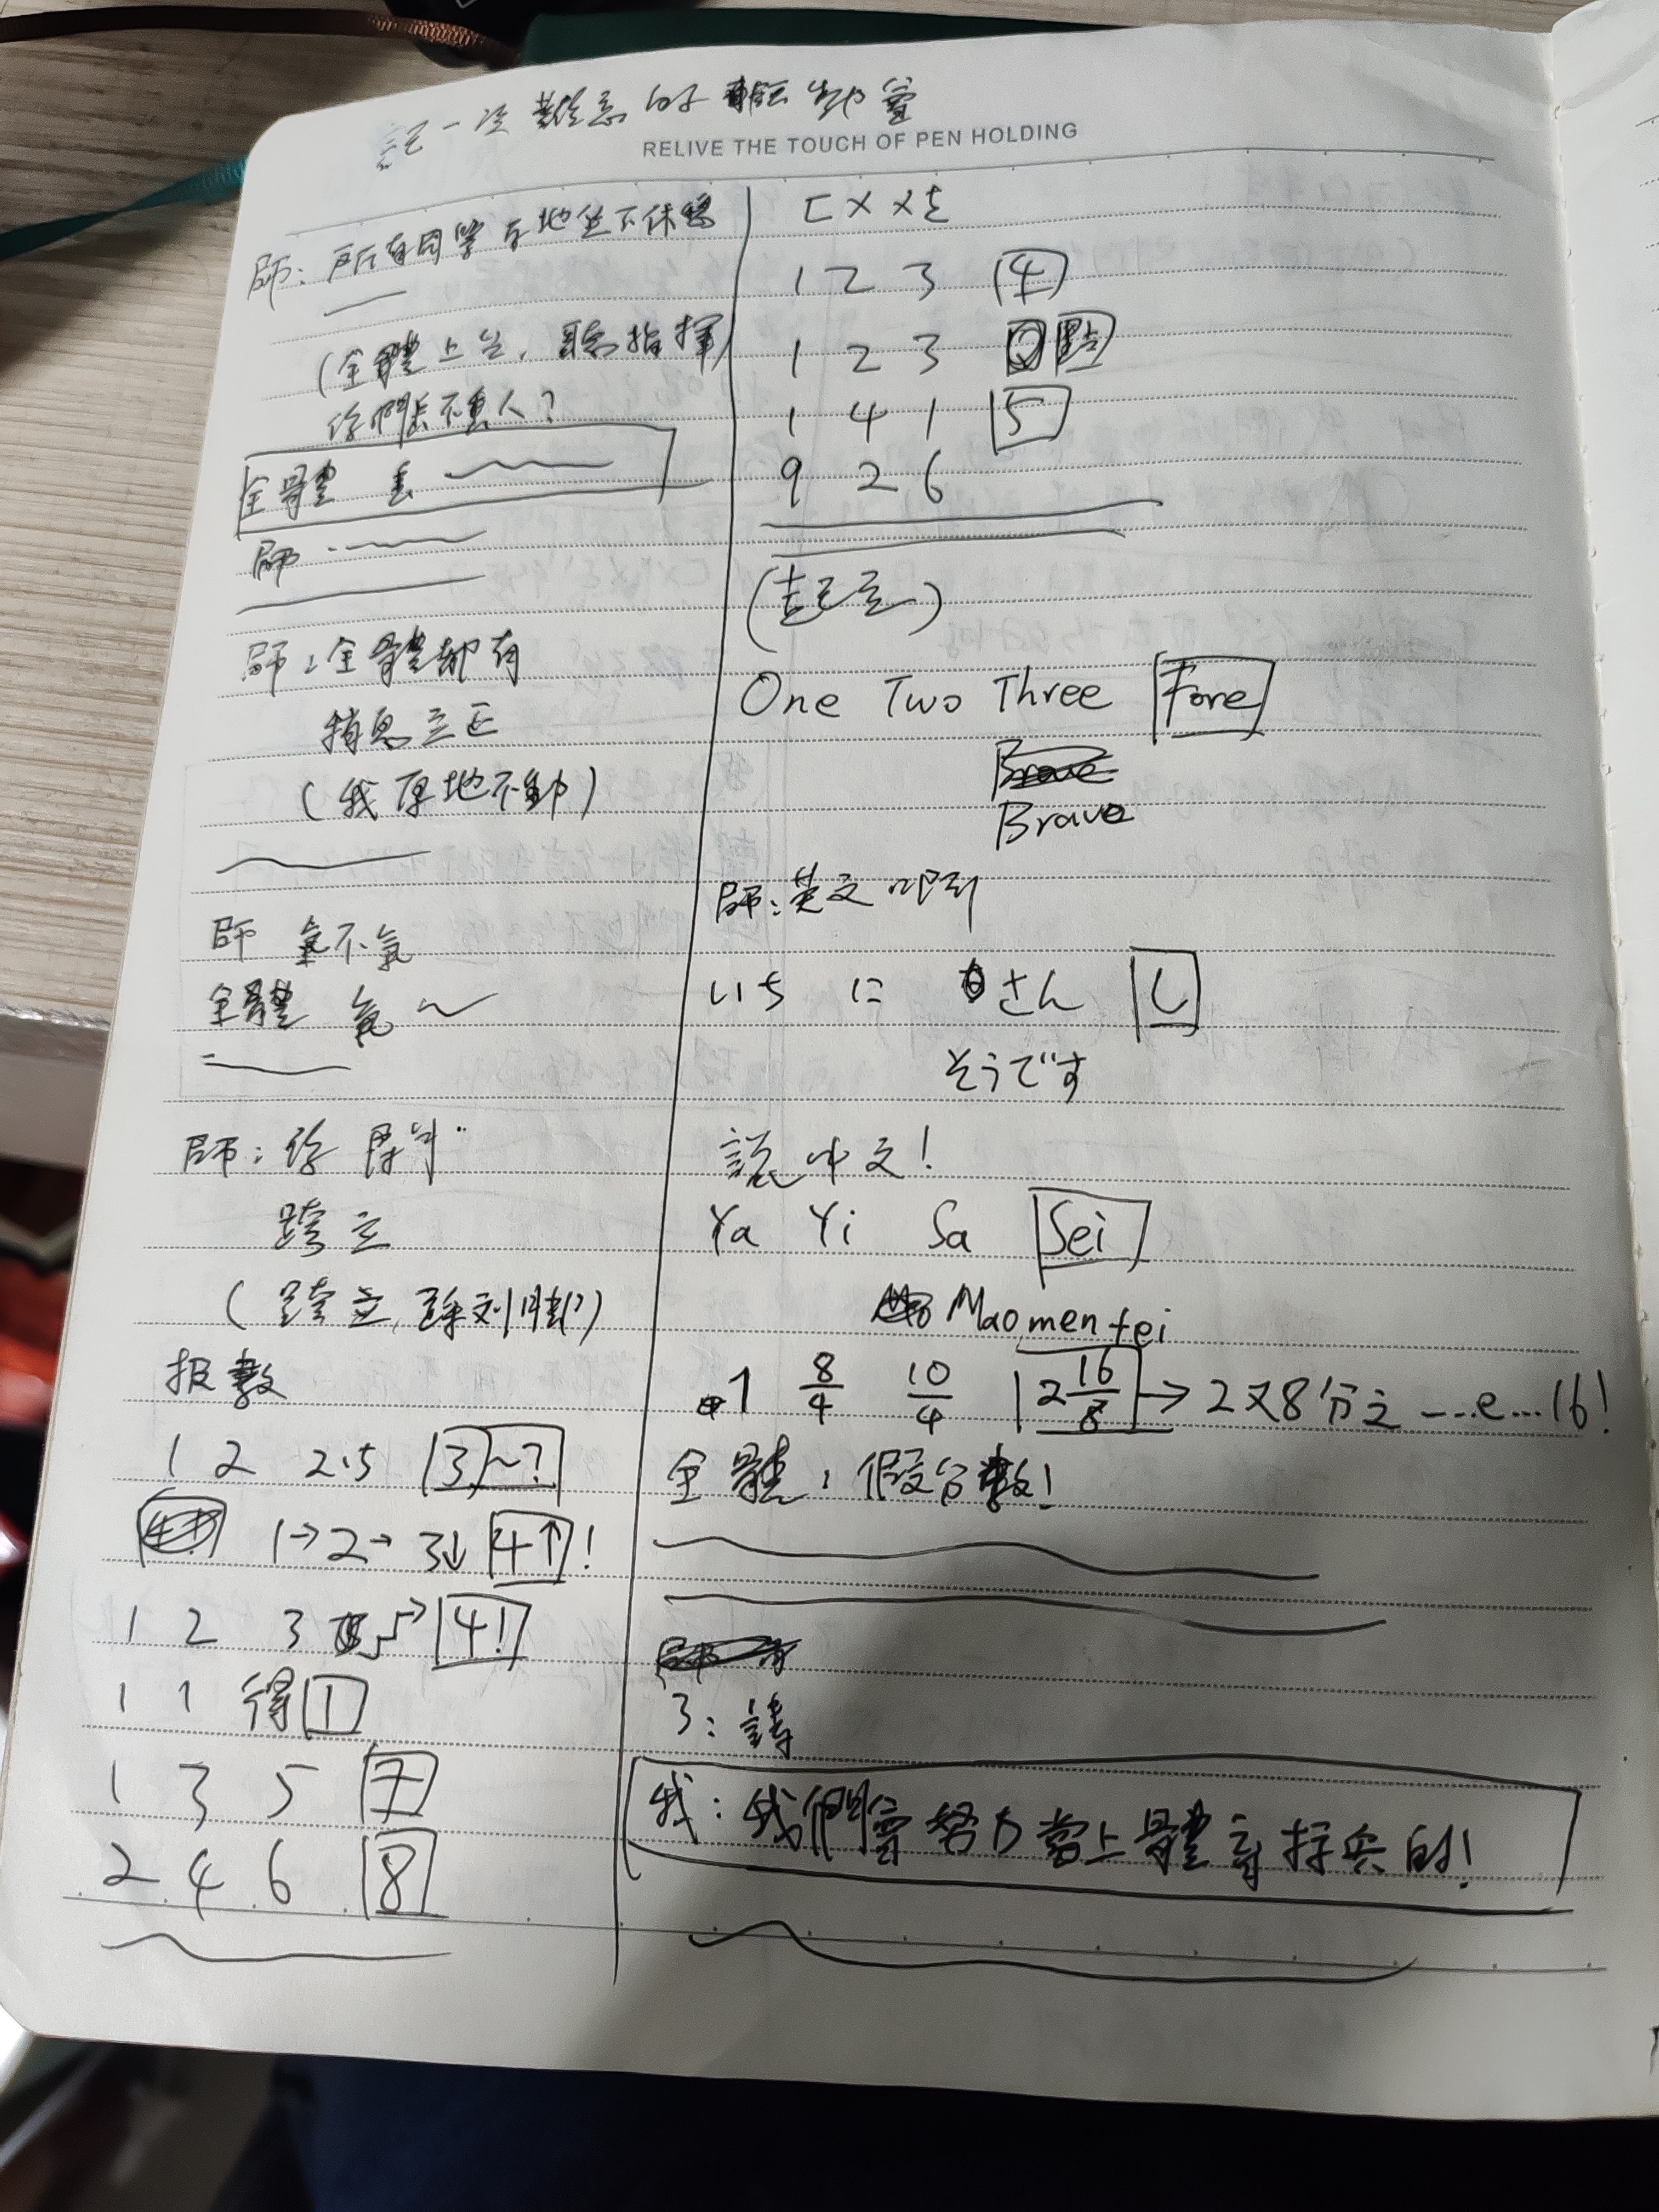 記一次難忘的
RELIVE THE TOUCH OF PEN HOLDING
師：所有同學 地坐下休息
(全體上台，聽指揮)
你們丟不丟人？
全體 丟
師
師：全體都有
稍息立正
(我原地不動)
師 氣不氣
全體 氣～
師：你
跨立
(跨立，
报數
1 2 2.5 3～?
1→2→ 3↓ 4↑!
1 2 3 4!
1 1 得 1
1 3 5 7
2 4 6 8
匚 X X
1 2 3 4
1 2 3 點
1 4 1 5
9 2 6
(起立)
One Two Three Fore
Brave
師：英文吧
いち に さん し
そうです
說中文！
Ya Yi Sa Sei
Maomentei
1 8/4 10/4 2 16/8 → 2又8分之 ---e...16!
全體：假分數！
3：請
我：我們會努力當上體育標兵的！